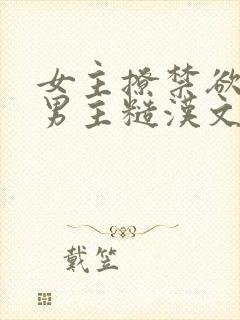 女主撩禁欲
男主糙漢文
戴笠